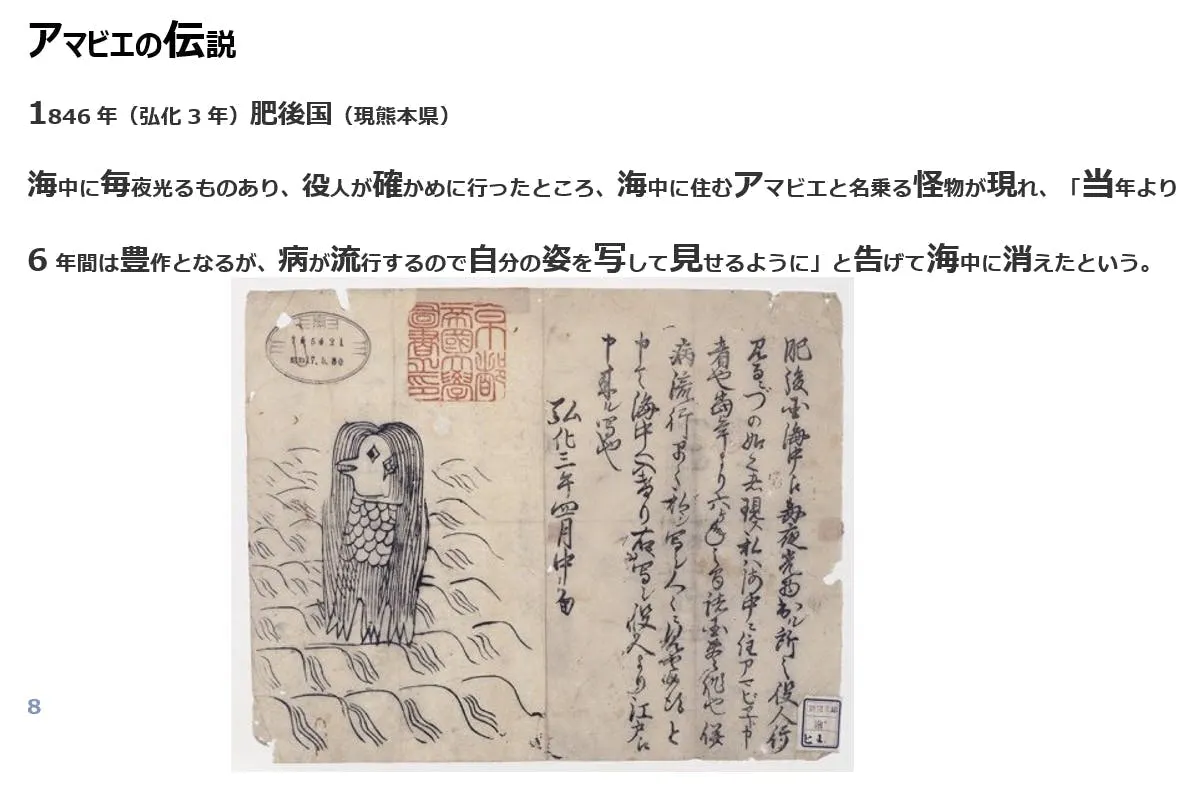 アマビエの伝説
1846年（弘化3年）肥後国（現熊本県）
海中に毎夜光るものあり、役人が確かめに行ったところ、海中に住むアマビエと名乗る怪物が現れ、「当年より
6年間は豊作となるが、病が流行するので自分の姿を写して見せるように」と告げて海中に消えたという。
京都
帝國大學
圖書之印
肥後国海中江毎夜光物出ル所之役人行
見るニづの如く者現ス私ハ海中ニ住アマビヱト申
者也當年より六ヶ年之間諸国豊作也併
病流行早々私ヲ写シ人々ニ見せ候得と
申て海中へ入けり右写シ役人より江戸江
申来ル写也
弘化三年四月中旬
8